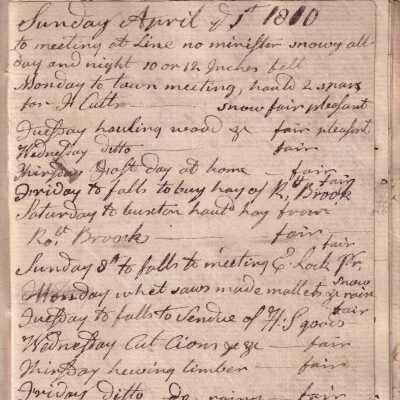 Sunday April ye 1st 1810
to meeting at Line no minister snowy all
day and night 10 or 12 Inches fell
Monday to town meeting, hauld 2 spars
for H Cutts snow fair pleasant
Tuesday hauling wood &c fair pleasant
Wednesday ditto fair
Thirsday Fast day at home fair
Friday to falls to buy hay of Rt Brook fair
Saturday to buxton hauld hay from
Rot Brook fair
Sunday 8th to falls to meeting E. Lock Pr. fair
Monday whet saws made mallets & rain snow
Tuesday to falls to Vendue of H. S goods fair
Wednesday Cut Cions &c &c fair
Thirsday hewing timber fair
Friday ditto do fair